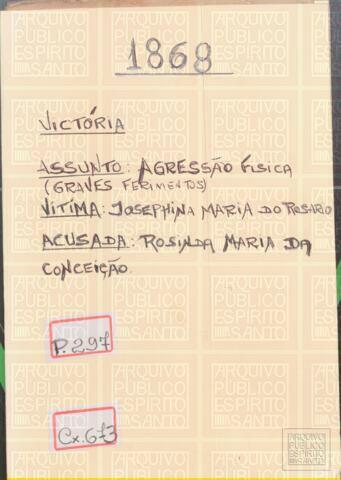 1868
VICTÓRIA
ASSUNTO: AGRESSÃO FÍSICA
(GRAVES FERIMENTOS)
VÍTIMA: JOSEPHINA MARIA DO ROSARIO
ACUSADA: ROSINDA MARIA DA
CONCEIÇÃO
P.297
Cx.673
ARQUIVO
PÚBLICO
ESPÍRITO
SANTO